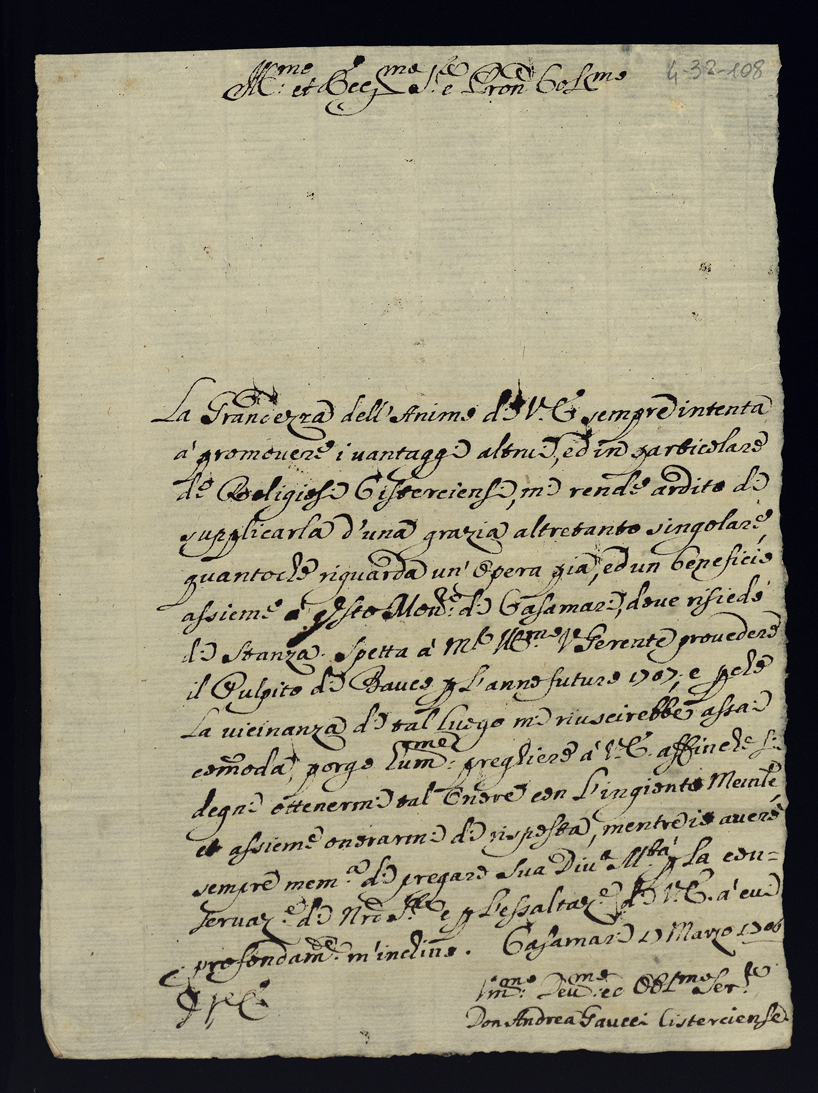 Ill:mo et Ecc:mo S:re e Pron Col:mo
4-32-108
La Grandezza dell'Animo di V.E. sempre intenta
à promovere i vantaggi altrui, ed in particolare
de Religiosi Cisterciensi, mi rende ardito di
supplicarla d'una grazia altretanto singolare,
quantoche riguarda un'Opera pia, ed un beneficio
assieme à qsto Mon:ro di Casamari, dove risiedo
di stanza. Spetta à M:r Ill:mo V.Gerente provedere
il Pulpito di Bauco p L'anno futuro 1707; e pche
La vicinanza di tal Luogo mi riuscirebbe assai
comoda, porgo hum:me preghiere à V.E. affinche si
degni ottenermi tal Onore con L'ingionto Memle,
et assieme onorarmi di risposta, mentre io averò
sempre mem:a di pregare Sua Div:a M:tà p La con=
servaz:e di Nro S:re e p L'essaltaz:e di V.E. à cui
profondam:te m'inchino. Casamari 17 Marzo 1706
D V.E.
Um:mo Dev:mo ed Obl:mo Ser:re
Don Andrea Gaucci Cisterciense